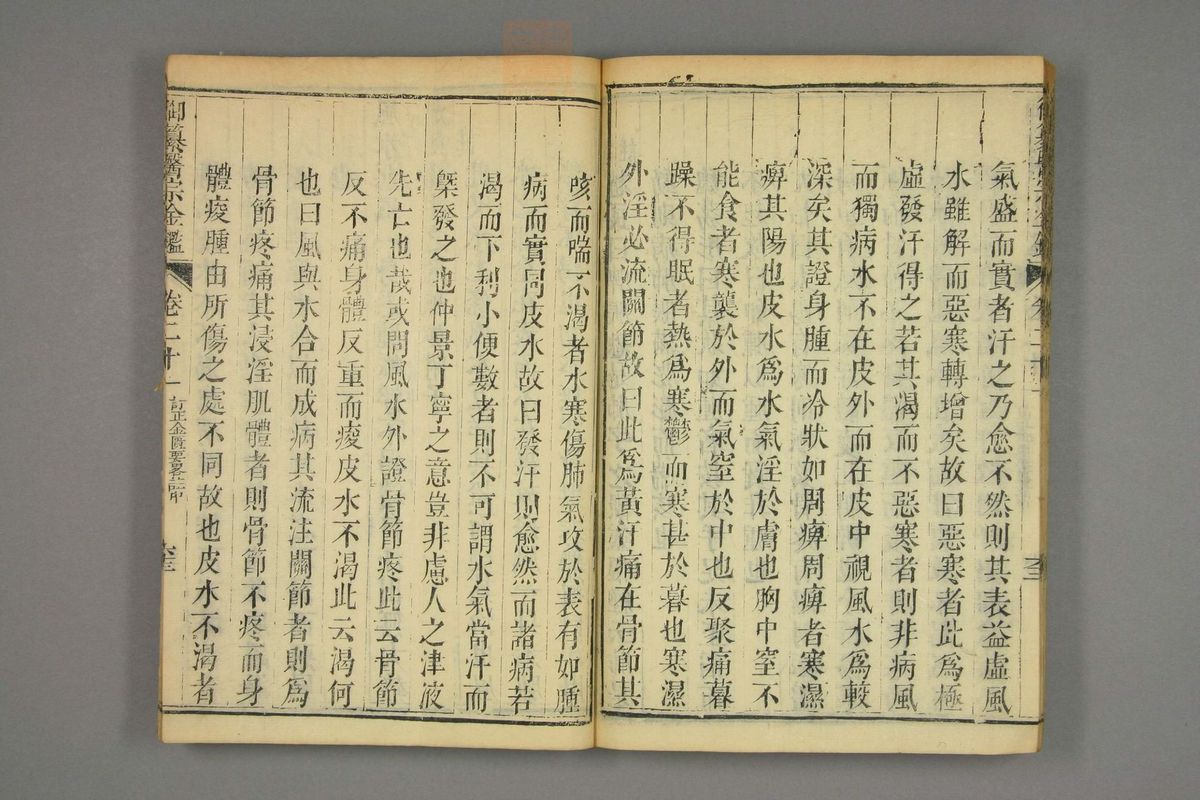 氣盛而實者汗之乃愈不然則其表益虛風
水雖解而惡寒轉增矣故曰惡寒者此爲極
虛發汗得之若其渴而不惡寒者則非病風
而獨病水不在皮外而在皮中視風水爲較
深矣其證身腫而冷狀如周痺周痺者寒濕
痺其陽也皮水爲水氣淫於膚也胸中窒不
能食者寒襲於外而氣窒於中也反聚痛暮
躁不得眠者熱爲寒鬱而寒甚於暮也寒濕
外淫必流關節故曰此爲黃汗痛在骨節其
咳而喘不渴者水寒傷肺氣攻於表有如腫
病而實同皮水故曰發汗則愈然而諸病若
渴而下利小便數者則不可謂水氣當汗而
槩發之也仲景丁寧之意豈非慮人之津液
先亡也哉或問風水外證骨節疼此云骨節
反不痛身體反重而痠皮水不渴此云渴何
也曰風與水合而成病其流注關節者則爲
骨節疼痛其浸淫肌體者則骨節不疼而身
體痠腫由所傷之處不同故也皮水不渴者
御纂醫宗金鑑
卷二十一
訂正金匱要畧註